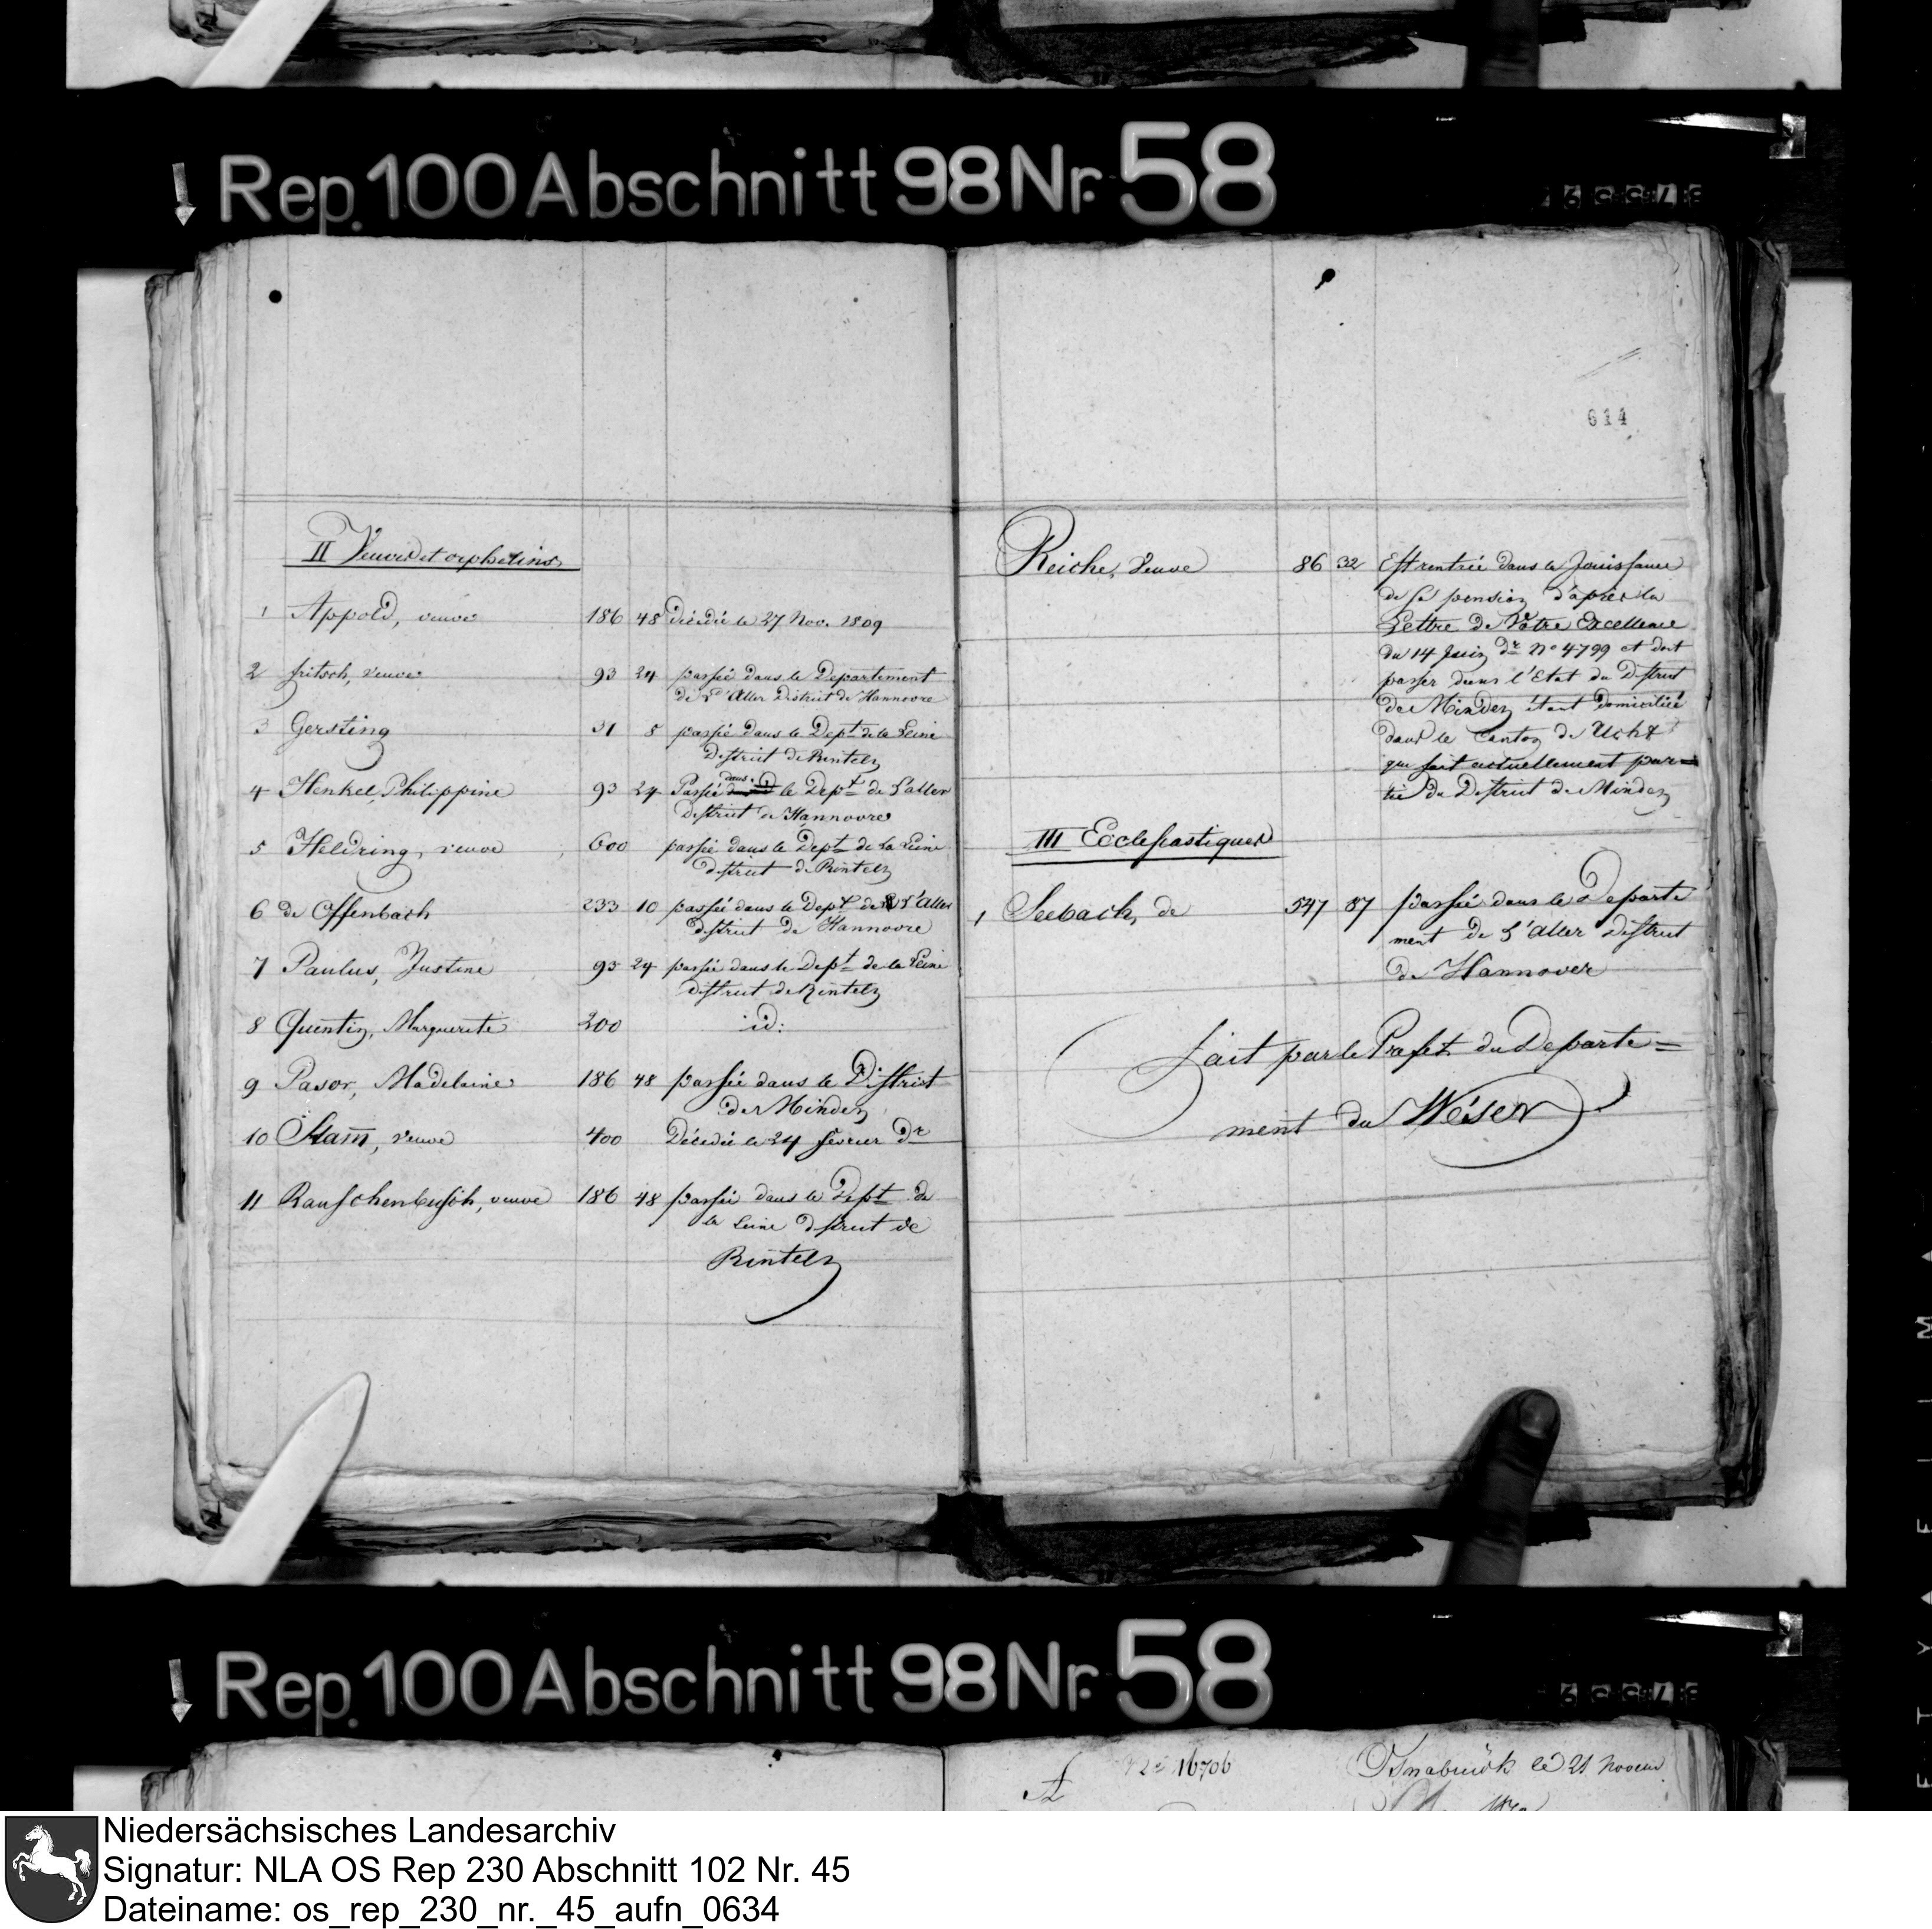 Rep. 100 Abschnitt 98 Nr. 58
614
II Veuves et orphelins
1 Appold, veuve 186 48 décedée le 27 Nov. 1809
2 fritsch, veuve 93 24 passée dans le Departement
de L'Aller District de Hannovre
3 Gersting 31 5 passée dans le Dept de la Leine
District de Rinteln
4 Henkel, Philippine 93 24 Passée dans le Dept de L'aller
district de Hannovre
5 Heldring, veuve 600 passée dans le Dept de la Leine
district de Rinteln
6 de Offenbach 233 10 passée dans le Dept de L'Aller
district de Hannovre
7 Paulus, Justine 93 24 passée dans le Dept de la Leine
district de Rinteln
8 Quentin, Marguerite 200 id:
9 Pavor, Madelaine 186 48 passée dans le District
de Minden
10 Stam̅, veuve 400 Décedée le 24 fevrier dr
11 Rauschenbusch, veuve 186 48 passée dans le Dept de
la Leine district de
Rinteln
Reiche, veuve 86 32 Est rentrée dans la Jouissance
de sa pension d'après la
Lettre de Votre Excellence
du 14 Juin dr No 4799 et doit
passer dans l'Etat du District
de Minden étant domiciliée
dans le Canton de Ucht
qui fait actuellement par=
tie du District de Minden
III Ecclesiastiques
1 Seebach, de 547 87 passée dans le Departe
ment de L'Aller District
de Hannover
Fait par le Prefet du Departe=
ment du Weser
Rep. 100 Abschnitt 98 Nr. 58
16706
Osnabruck le 21
Niedersächsisches Landesarchiv
Signatur: NLA OS Rep 230 Abschnitt 102 Nr. 45
Dateiname: os_rep_230_nr._45_aufn_0634